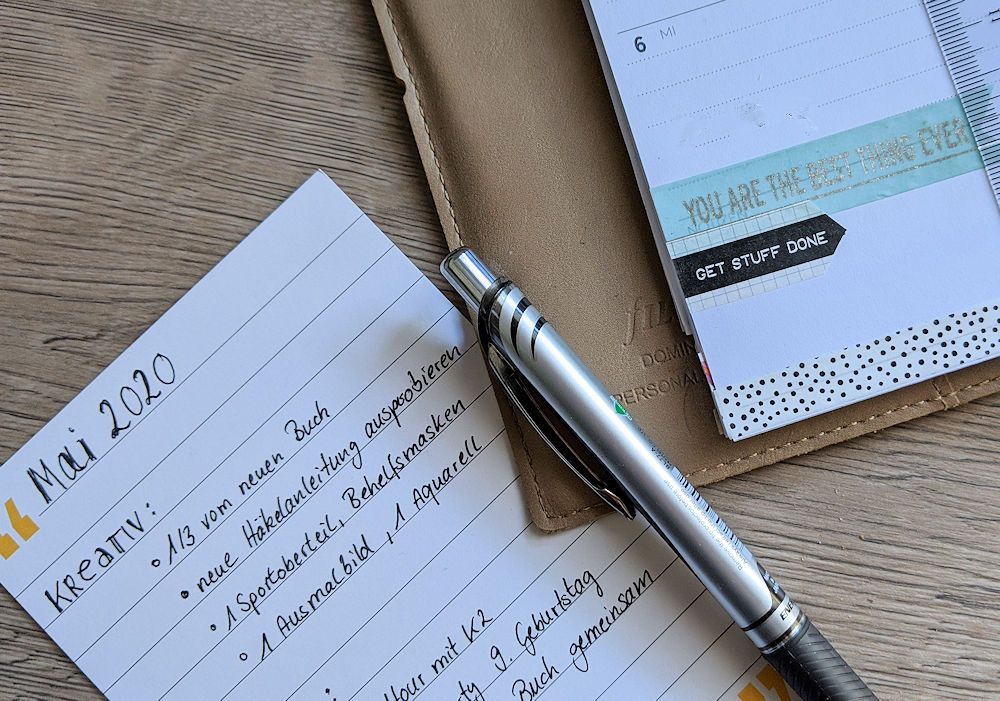 6 MI
YOU ARE THE BEST THING EVER
GET STUFF DONE
Mai 2020
Kreativ:
1/3 vom neuen Buch
neue Häkelanleitung ausprobieren
1 Sportoberteil, Behelfsmasken
1 Ausmalbild, 1 Aquarell
Hour mit K2
9. Geburtstag
Buch gemeinsam
PERSONAL